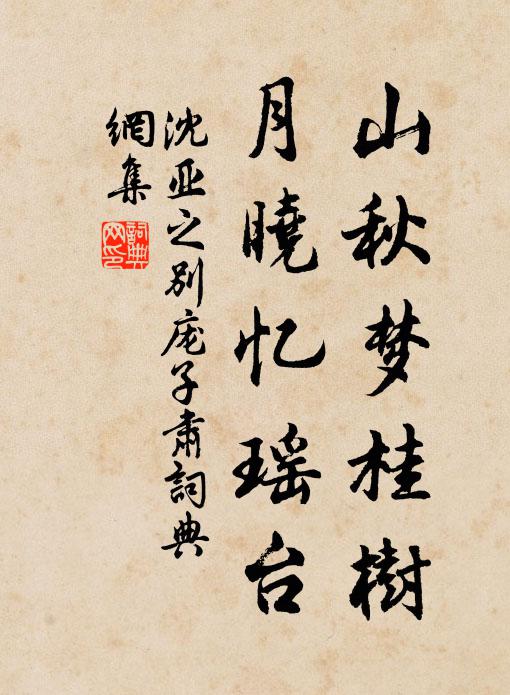 山秋梦桂樹
月曉忆瑶台
沈亚之别庞子肃詞典
網集
詞典
网印